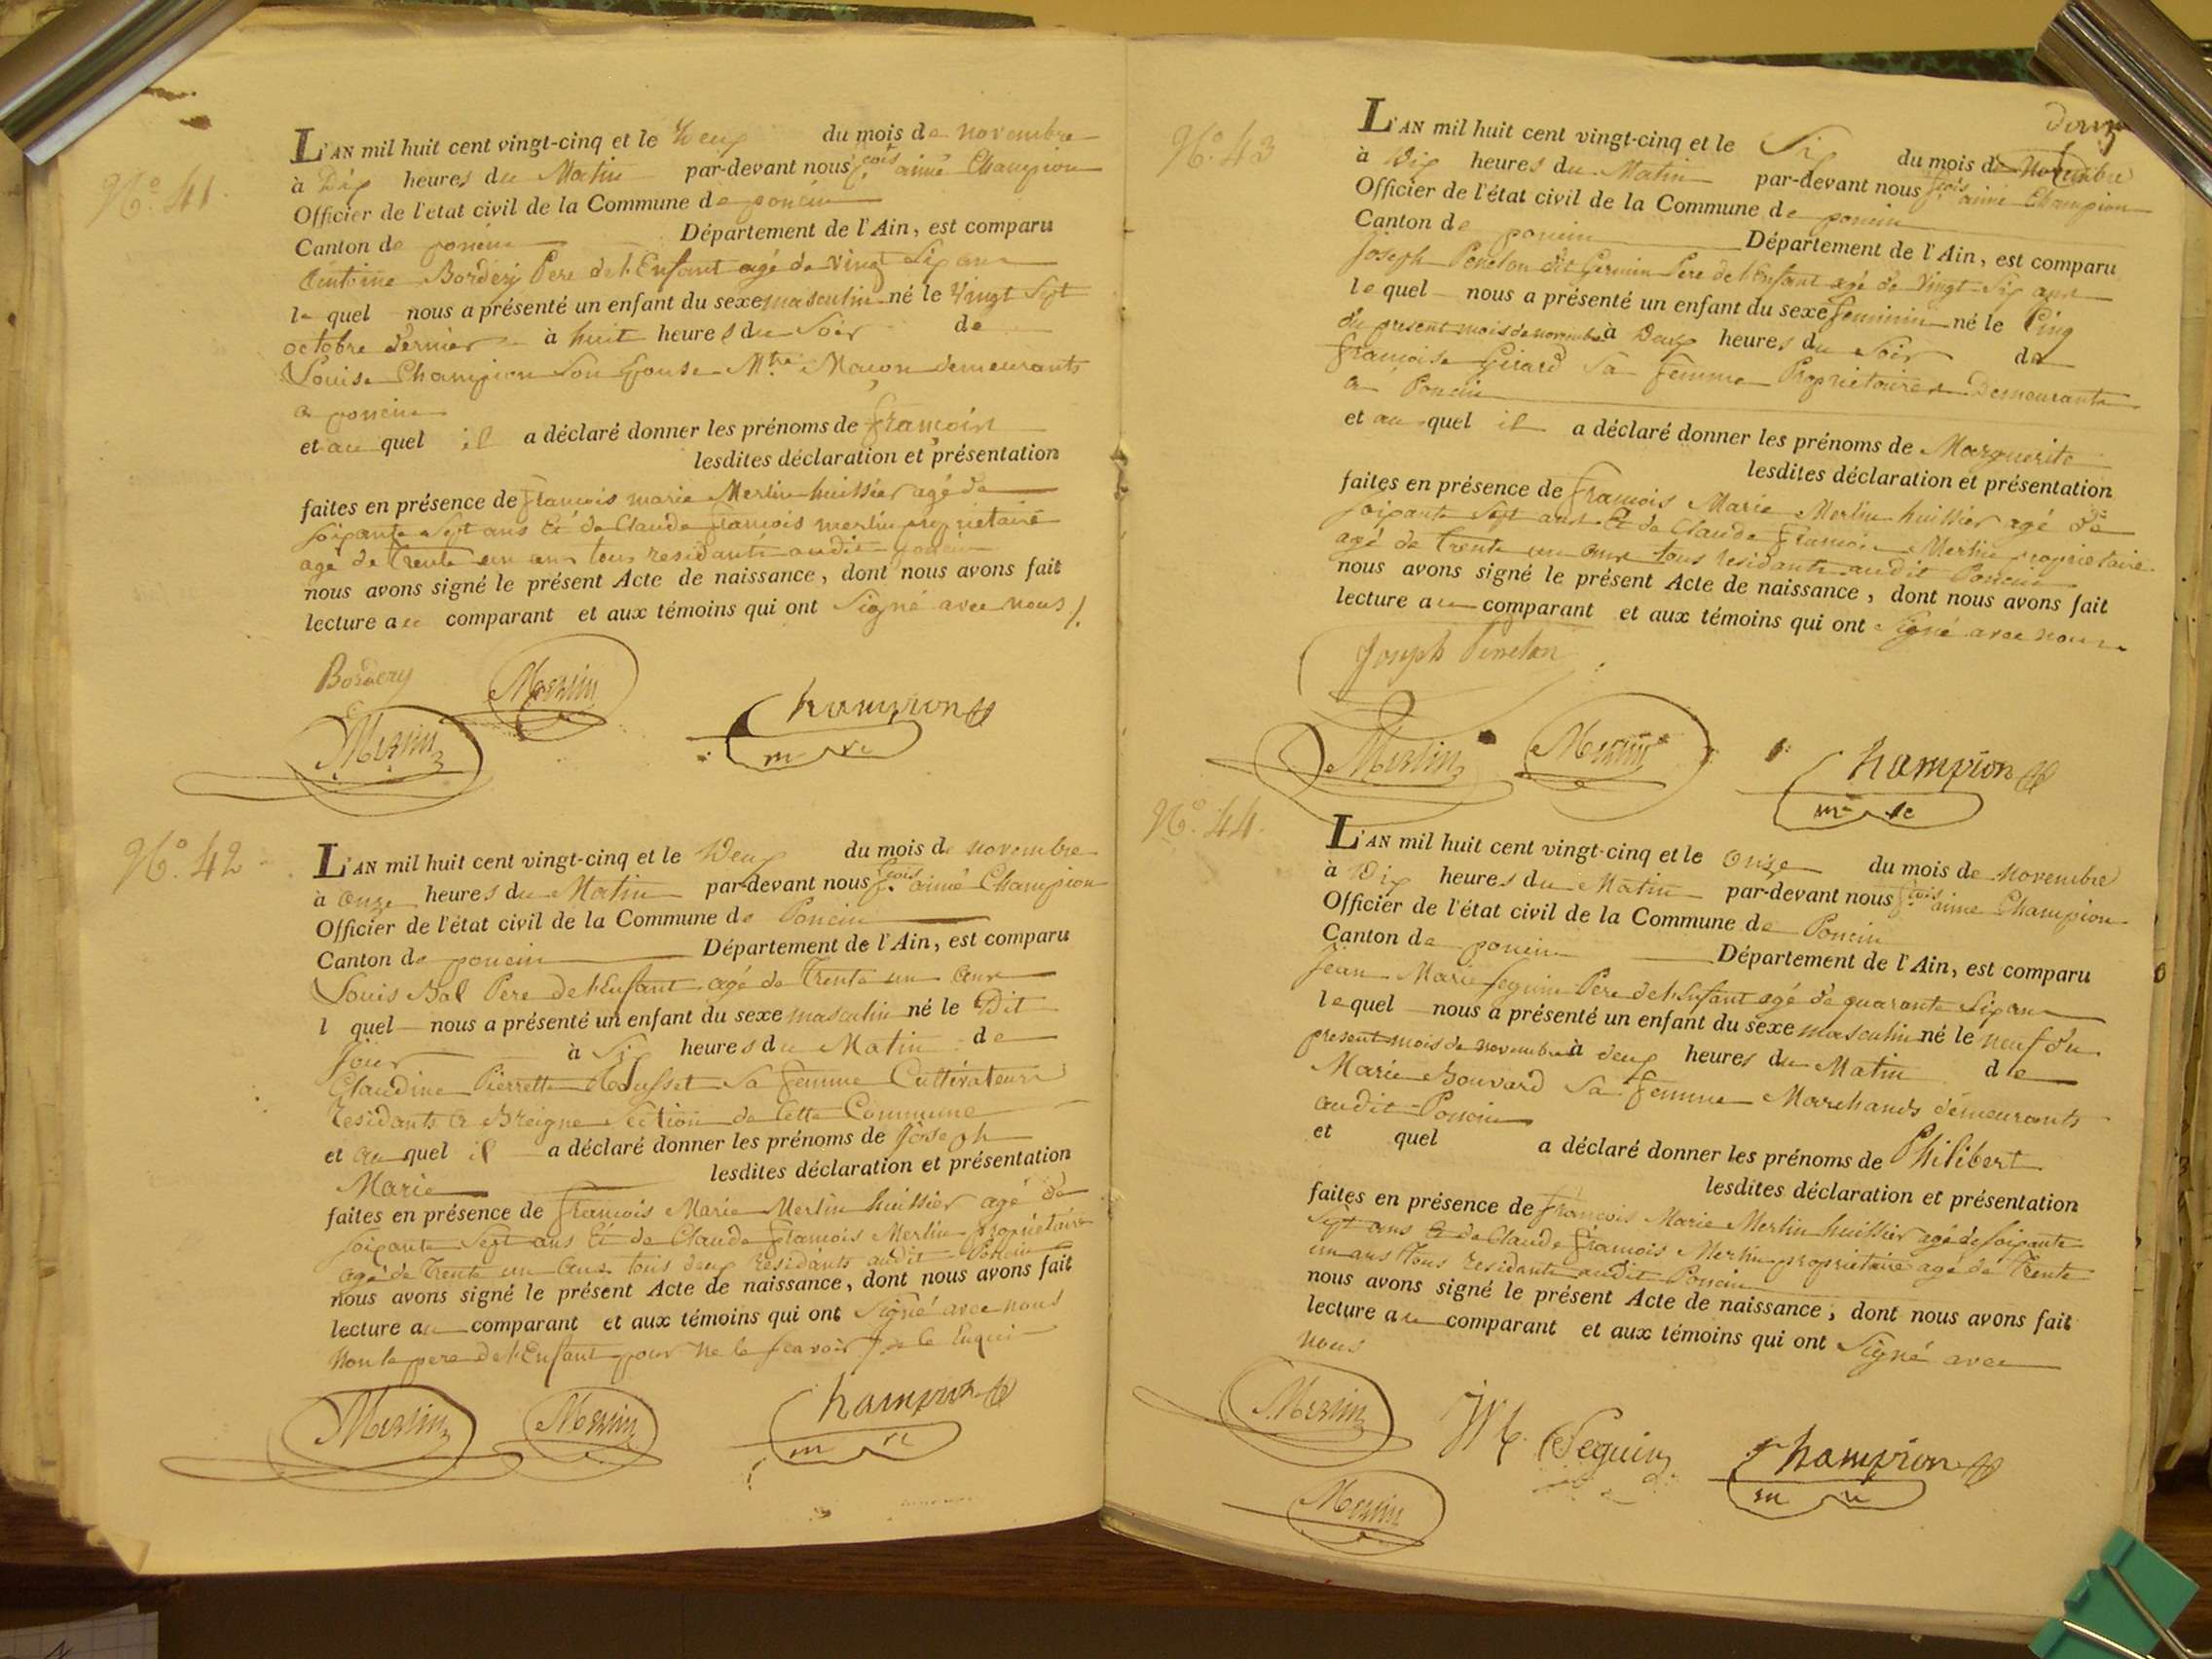 N.º 41.
L'AN mil huit cent vingt-cinq et le Deux du mois de novembre
à Dix heures du Matin par-devant nous f.çois aimé Champion
Officier de l'etat civil de la Commune de poncin
Canton de poncin Département de l'Ain, est comparu
Antoine Bordery Pere de l'Enfant agé de vingt Six ans
le quel nous a présenté un enfant du sexe masculin né le Vingt Sept
octobre dernier à huit heures du Soir de
Louise Champion Son Epouse M.tre Maçon demeurants
a poncin
et au quel il a déclaré donner les prénoms de françois
lesdites déclaration et présentation
faites en présence de françois marie Merlin huissier agé de
soixante Sept ans Et de Claude françois merlin propriétaire
agé de trente un ans tous residants audit poncin
nous avons signé le présent Acte de naissance, dont nous avons fait
lecture au comparant et aux témoins qui ont Signé avec nous ./.
Bordery
Merlin
Merlin
Champion
m re
N.º 42
L'AN mil huit cent vingt-cinq et le Deux du mois de novembre
à onze heures du Matin par-devant nous f.çois aimé Champion
Officier de l'état civil de la Commune de Poncin
Canton de poncin Département de l'Ain, est comparu
Louis Bal Pere de l'Enfant agé de trente un ans
l quel nous a présenté un enfant du sexe masculin né le Dit
Jour à Six heures du Matin de
Claudine Pierrette Sa femme Cultivateurs
residants a Breigne Section de Cette Commune
et au quel il a déclaré donner les prénoms de Joseph
Marie lesdites déclaration et présentation
faites en présence de françois Marie Merlin huissier agé de
soixante Sept ans Et de Claude françois Merlin propriétaire
agé de trente un ans tous deux residants audit Poncin
nous avons signé le présent Acte de naissance, dont nous avons fait
lecture au comparant et aux témoins qui ont Signé avec nous
Non le pere de l'Enfant pour ne le sçavoir de ce Enquis
Merlin
Merlin
Champion
m re
N.º 43
douze
L'AN mil huit cent vingt-cinq et le Six du mois de Novembre
à Dix heures du Matin par-devant nous f.çois aimé Champion
Officier de l'état civil de la Commune de poncin
Canton de poncin Département de l'Ain, est comparu
Joseph Peneton dit Germin Pere de l'Enfant agé de Vingt Six ans
le quel nous a présenté un enfant du sexe feminin né le Cinq
du present mois de novembre à Deux heures du Soir de
françoise Girard Sa femme Propriétaires Demeurants
a Poncin
et au quel il a déclaré donner les prénoms de Marguerite
lesdites déclaration et présentation
faites en présence de françois Marie Merlin huissier agé de
soixante Sept ans Et de Claude françois Merlin propriétaire
agé de trente un ans tous residants audit Poncin
nous avons signé le présent Acte de naissance, dont nous avons fait
lecture au comparant et aux témoins qui ont Signé avec nous
Joseph Peneton
Merlin
Merlin
Champion
m re
N.º 44.
L'AN mil huit cent vingt-cinq et le onze du mois de novembre
à Dix heures du Matin par-devant nous f.çois aimé Champion
Officier de l'état civil de la Commune de Poncin
Canton de poncin Département de l'Ain, est comparu
Jean Marie Seguin Pere de l'Enfant agé de quarante Six ans
le quel nous a présenté un enfant du sexe masculin né le neuf du
present mois de novembre à deux heures du Matin de
Marie Bouvard Sa femme Marchands demeurants
audit Poncin
et quel a déclaré donner les prénoms de Philibert
lesdites déclaration et présentation
faites en présence de françois Marie Merlin huissier agé de soixante
Sept ans Et de Claude françois Merlin propriétaire agé de trente
un ans tous residants audit Poncin
nous avons signé le présent Acte de naissance, dont nous avons fait
lecture au comparant et aux témoins qui ont Signé avec
nous
Merlin
Seguin
Champion
m re
Merlin